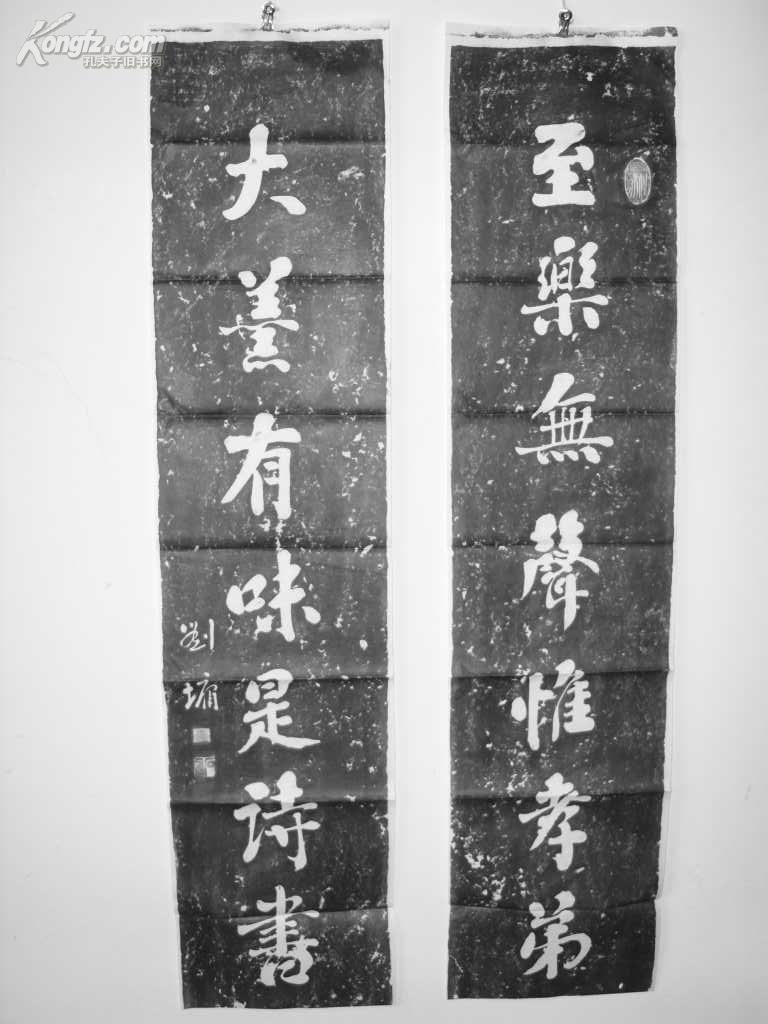 Kongfz.com
孔夫子旧书网
至樂無聲惟孝弟
大羹有味是诗書
劉墉